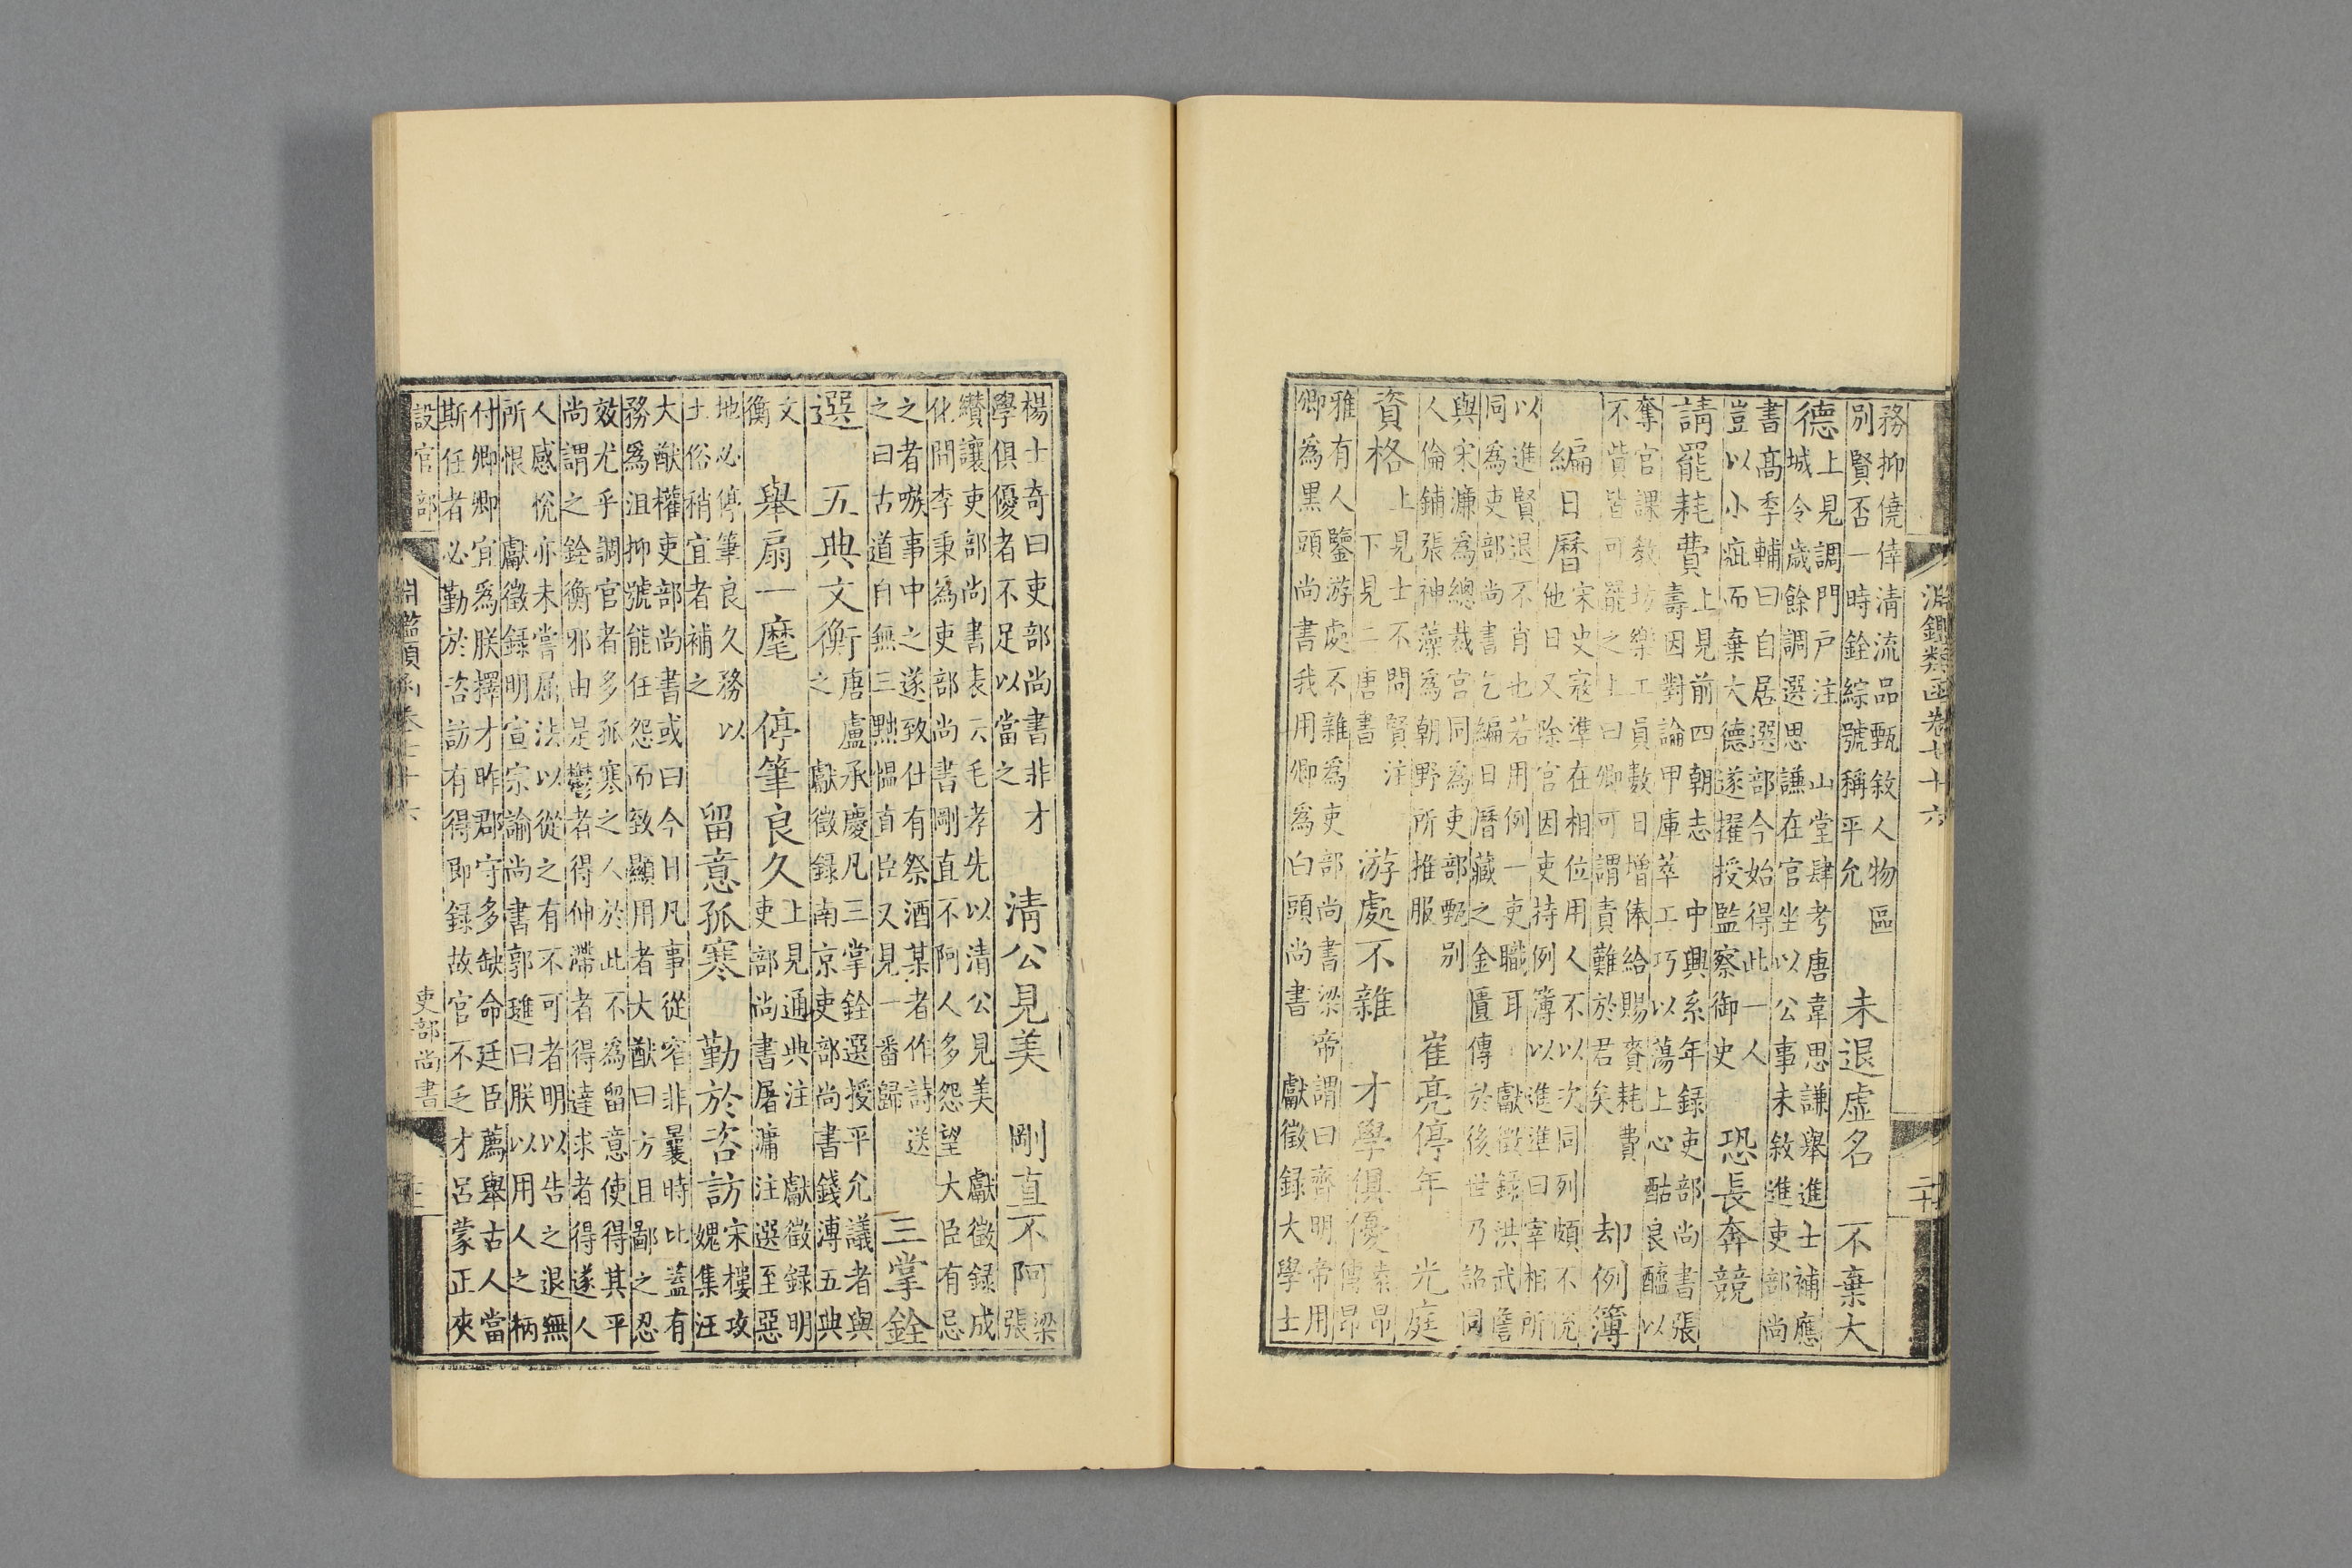 淵鑑類函卷七十六 二十
務抑僥倖清流品甄敘人物區
別賢否一時銓綜號稱平允
未退虛名 不棄大
德
上見調門戶注 山堂肆考唐韋思謙舉進士補應
城令歲餘調選思謙在官坐以公事未敘進吏部尚
書高季輔曰自居選部今始得此一人
豈以小疵而棄大德遂擢授監察御史
恐長奔競
請罷耗費
上見前四朝志 中興系年録吏部尚書張
壽因對論甲庫萃工巧以蕩上心酤良醞以
奪官課敎坊樂工員數日增俸給賜賚耗費
不貲皆可罷之上曰卿可謂責難於君矣
却例簿
編日曆
宋史寇準在相位用人不以次同列頗不悦
他日又除官因吏持例簿以進準曰宰相所
以進賢退不肖也若用例一吏職耳 獻徵録洪武詹
同為吏部尚書乞編日曆藏之金匱傳於後世乃詔同
與宋濂為總裁官同為吏部甄別
人倫鋪張神藻為朝野所推服
崔亮停年 光庭
資格
上見士不問賢注
下見二唐書
游處不雜 才學俱優
袁昂
傳昂
雅有人鑒游處不雜為吏部尚書梁帝謂曰齊明帝用
卿為黒頭尚書我用卿為白頭尚書 獻徵録大學士
楊士奇曰吏部尚書非才
學俱優者不足以當之
清公見美 剛直不阿
梁
張
纘讓吏部尚書表六毛孝先以清公見美 獻徵録成
化間李秉為吏部尚書剛直不阿人多怨望大臣有忌
之者嗾事中之遂致仕有祭酒某者作詩送
之曰古道自無三黜愠直臣又見一番歸
三掌銓
選 五典文衡
唐盧承慶凡三掌銓選授平允議者與
之 獻徵録南京吏部尚書錢溥五典
文
衡
舉扇一麾 停筆良久
上見通典注 獻徵録明
吏部尚書屠滽注選至惡
地必停筆良久務以
土俗稍宜者補之
留意孤寒 勤於咨訪
宋樓攻
媿集汪
大猷權吏部尚書或曰今日凡事從窄非曩時比蓋有
務為沮抑號能任怨而致顯用者大猷曰方且鄙之忍
效尤乎調官者多孤寒之人於此不為留意使得其平
尚謂之銓衡邪由是鬱者得伸滯者得達求者得遂人
人感悦亦未嘗屈法以從之有不可者明以告之退無
所恨 獻徵録明宣宗諭尚書郭璡曰朕以用人之柄
付卿卿宜為朕擇才昨郡守多缺命廷臣薦舉古人當
斯任者必勤於咨訪有得即録故官不乏才呂蒙正夾
設官部 淵鑑類函卷七十六 吏部尚書